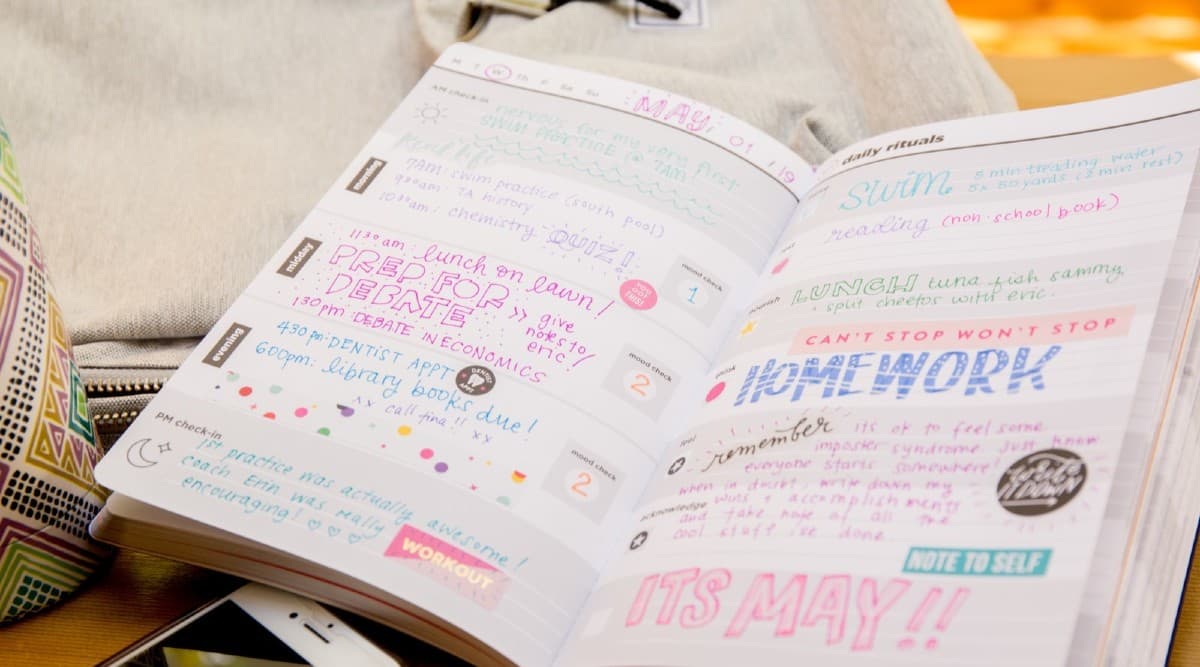 M T W Th F Sa Su
MAY, 01 / 19
AM check-in
nervous for my very first
SWIM PRACTICE @ 7AM!
morning
7am: swim practice (south pool)
9:00am: TA history
10:30am: chemistry QUIZ!
mood check
1
midday
11:30am: lunch on lawn!
PREP FOR
DEBATE >> give
notes to
eric!
YOU GOT THIS!
1:30pm: DEBATE IN ECONOMICS
mood check
2
evening
4:30pm: DENTIST APPT
DENTIST APPT
6:00pm: library books due!
^^ call tina!! xx
mood check
2
PM check-in
1st practice was actually awesome!
coach Erin was really
encouraging! ♡♡♡
WORKOUT
daily rituals
swim 5 min treading water
5x 50 yards (2 min rest)
reading (non-school book)
nourish
LUNCH tuna fish sammy,
split cheetos with eric.
CAN'T STOP WON'T STOP
HOMEWORK
feel
remember its ok to feel some
imposter syndrome just know
everyone starts somewhere!
when in doubt, write down my
acknowledge
wins + accomplishments
and take note of all the
cool stuff i've done.
NOTE TO SELF
ITS MAY!!